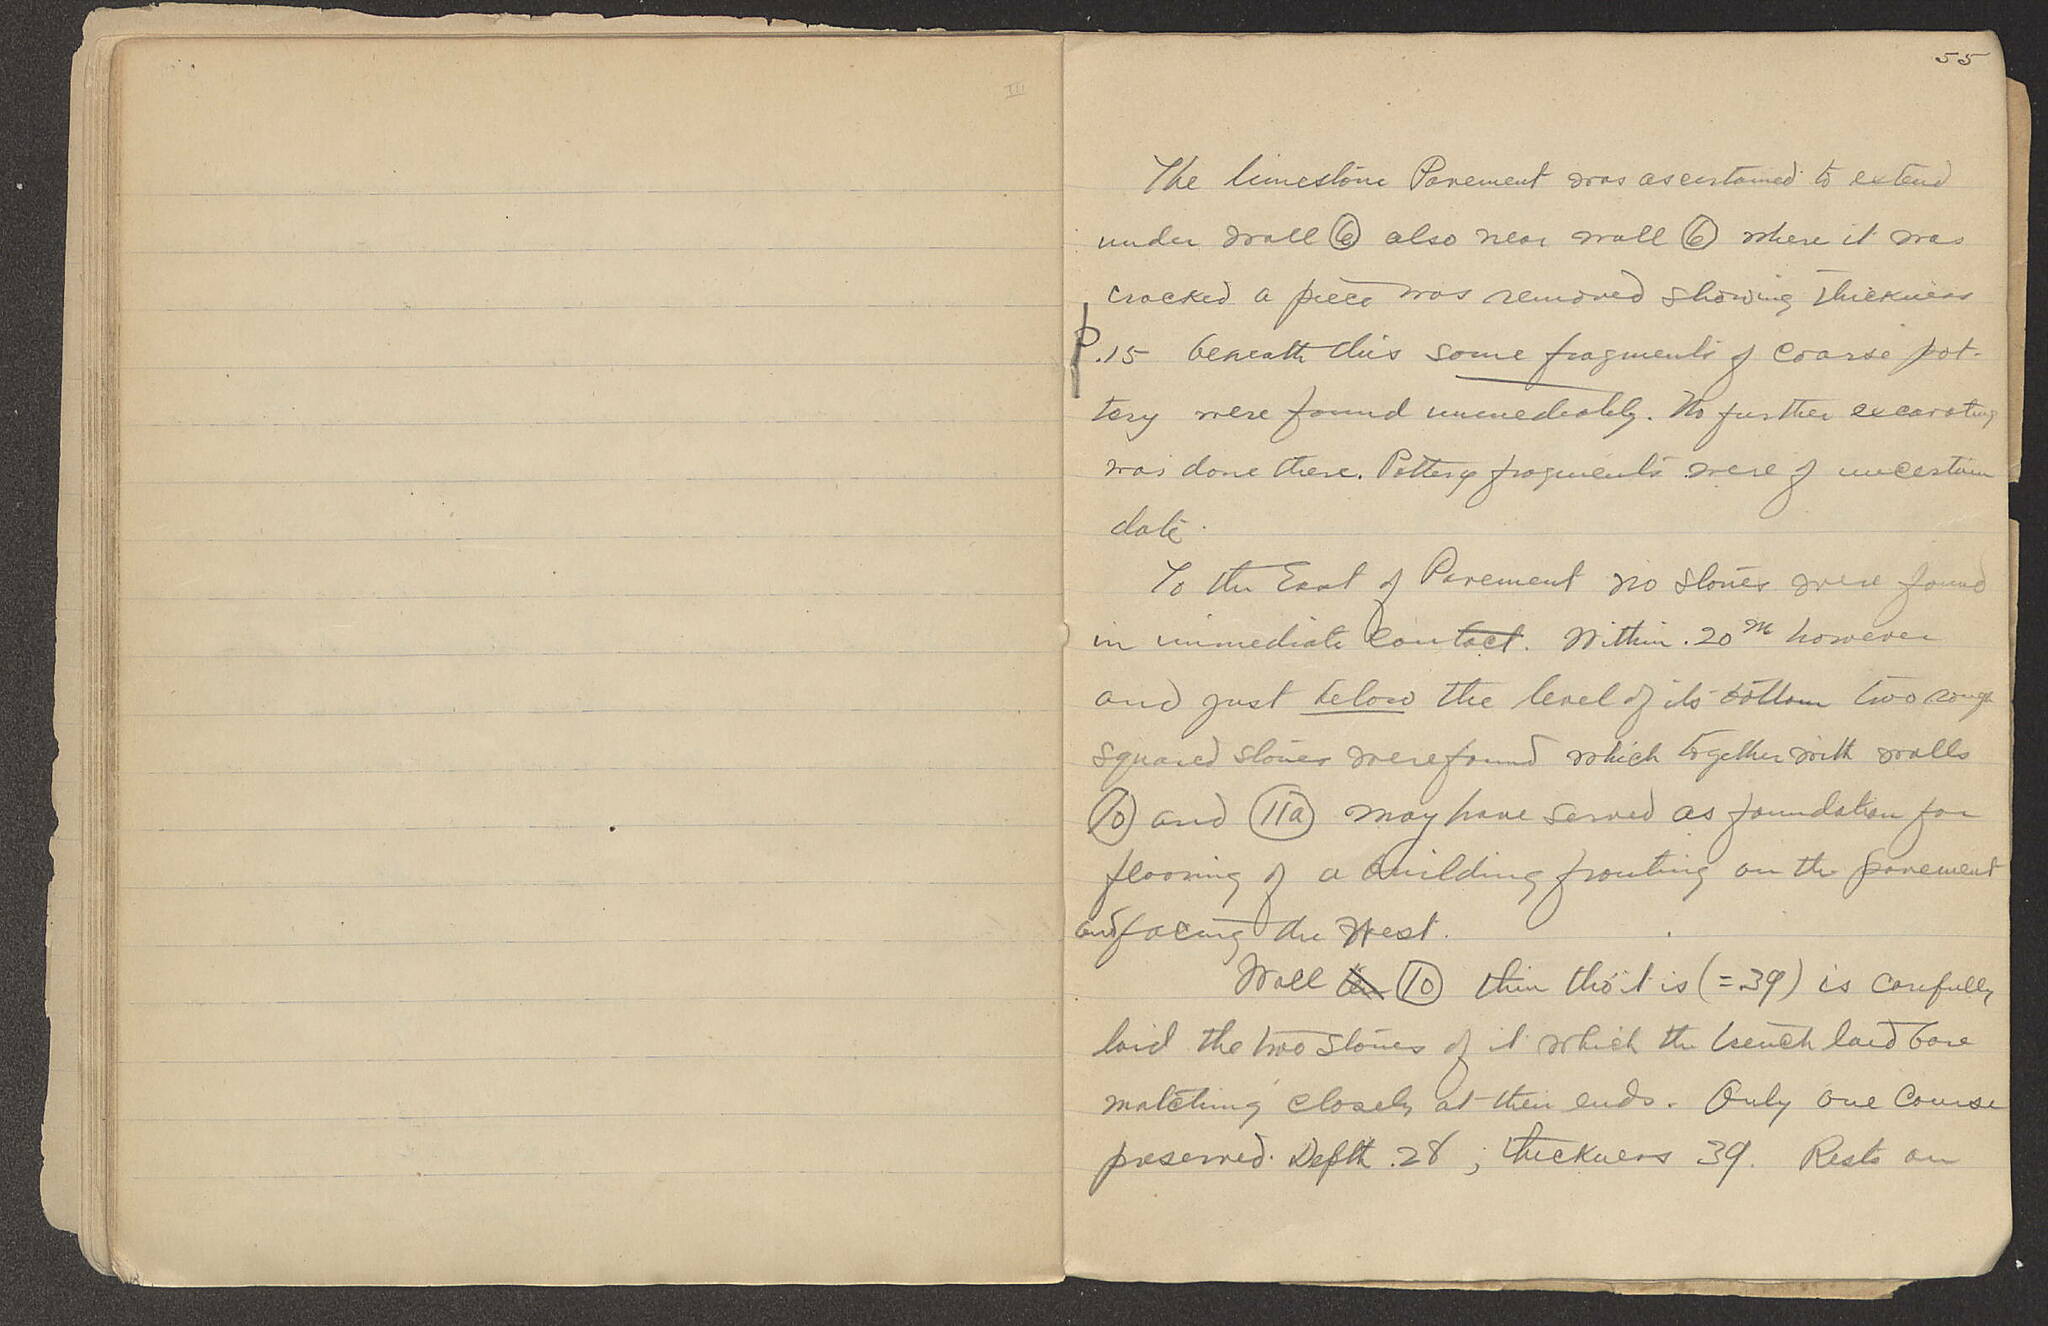 III
55
The limestone Pavement was ascertained to extend
under wall 6 also near wall 6 where it was
cracked a piece was removed showing thickness
P .15 beneath this some fragments of coarse pot-
tery were found immediately. No further excavating
was done there. Pottery fragments were of uncertain
date.
To the East of Pavement no stones were found
in immediate contact. Within .20m however
and just below the level of its bottom two rough
squared stones were found which together with walls
10 and 11a may have served as foundation for
flooring of a building fronting on the pavement
and facing the West.
Wall 10 thin tho' it is (=.39) is carefully
laid the two stones of it which the trench laid bare
matching closely at their ends. Only one course
preserved. Depth .28; thickness 39. Rests on